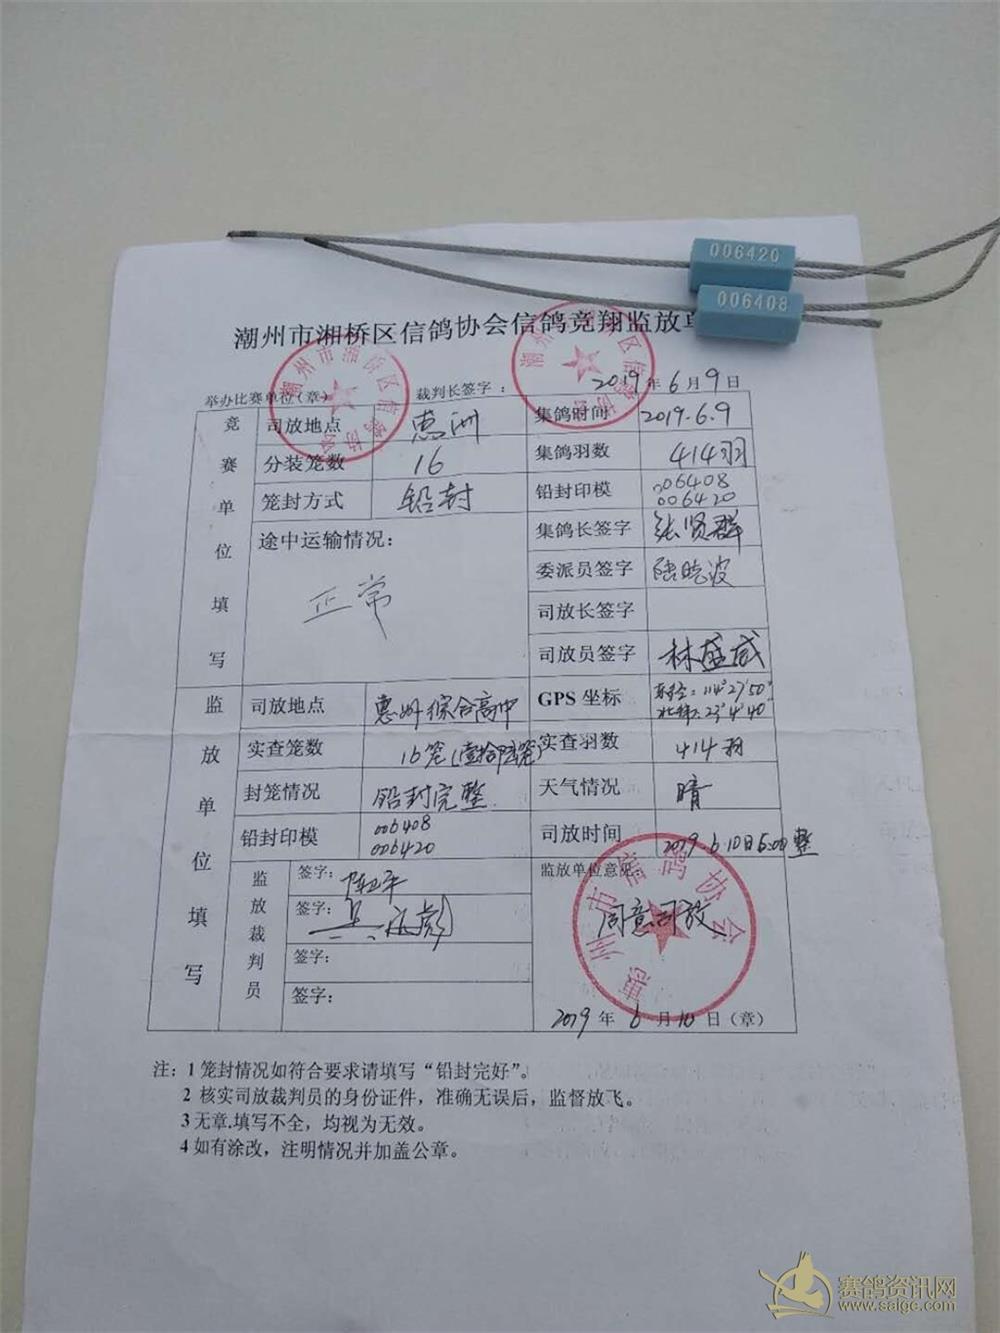 006420
006408
潮州市湘桥区信鸽协会信鸽竞翔监放单
举办比赛单位(章) 裁判长签字： 2019年6月9日
竞赛单位填写
司放地点 惠洲 集鸽时间 2019.6.9
分装笼数 16 集鸽羽数 414羽
笼封方式 铅封 铅封印模 006408
006420
途中运输情况： 集鸽长签字 张贤群
正常 委派员签字 陆晓波
司放长签字
司放员签字 林盛威
监放单位填写
司放地点 惠州综合高中 GPS坐标 东经：114°27′50″
北纬：23°4′40″
实查笼数 16笼(壹拾陆笼) 实查羽数 414羽
封笼情况 铅封完整 天气情况 晴
铅封印模 006408
006420
司放时间 2019.6.10日6:00整
监放裁判员
签字： 监放单位意见：
签字： 同意司放
签字：
签字：
2019年6月10日（章）
注：1 笼封情况如符合要求请填写“铅封完好”。
2 核实司放裁判员的身份证件，准确无误后，监督放飞。
3 无章.填写不全，均视为无效。
4 如有涂改，注明情况并加盖公章。
赛鸽资讯网
www.saigc.com